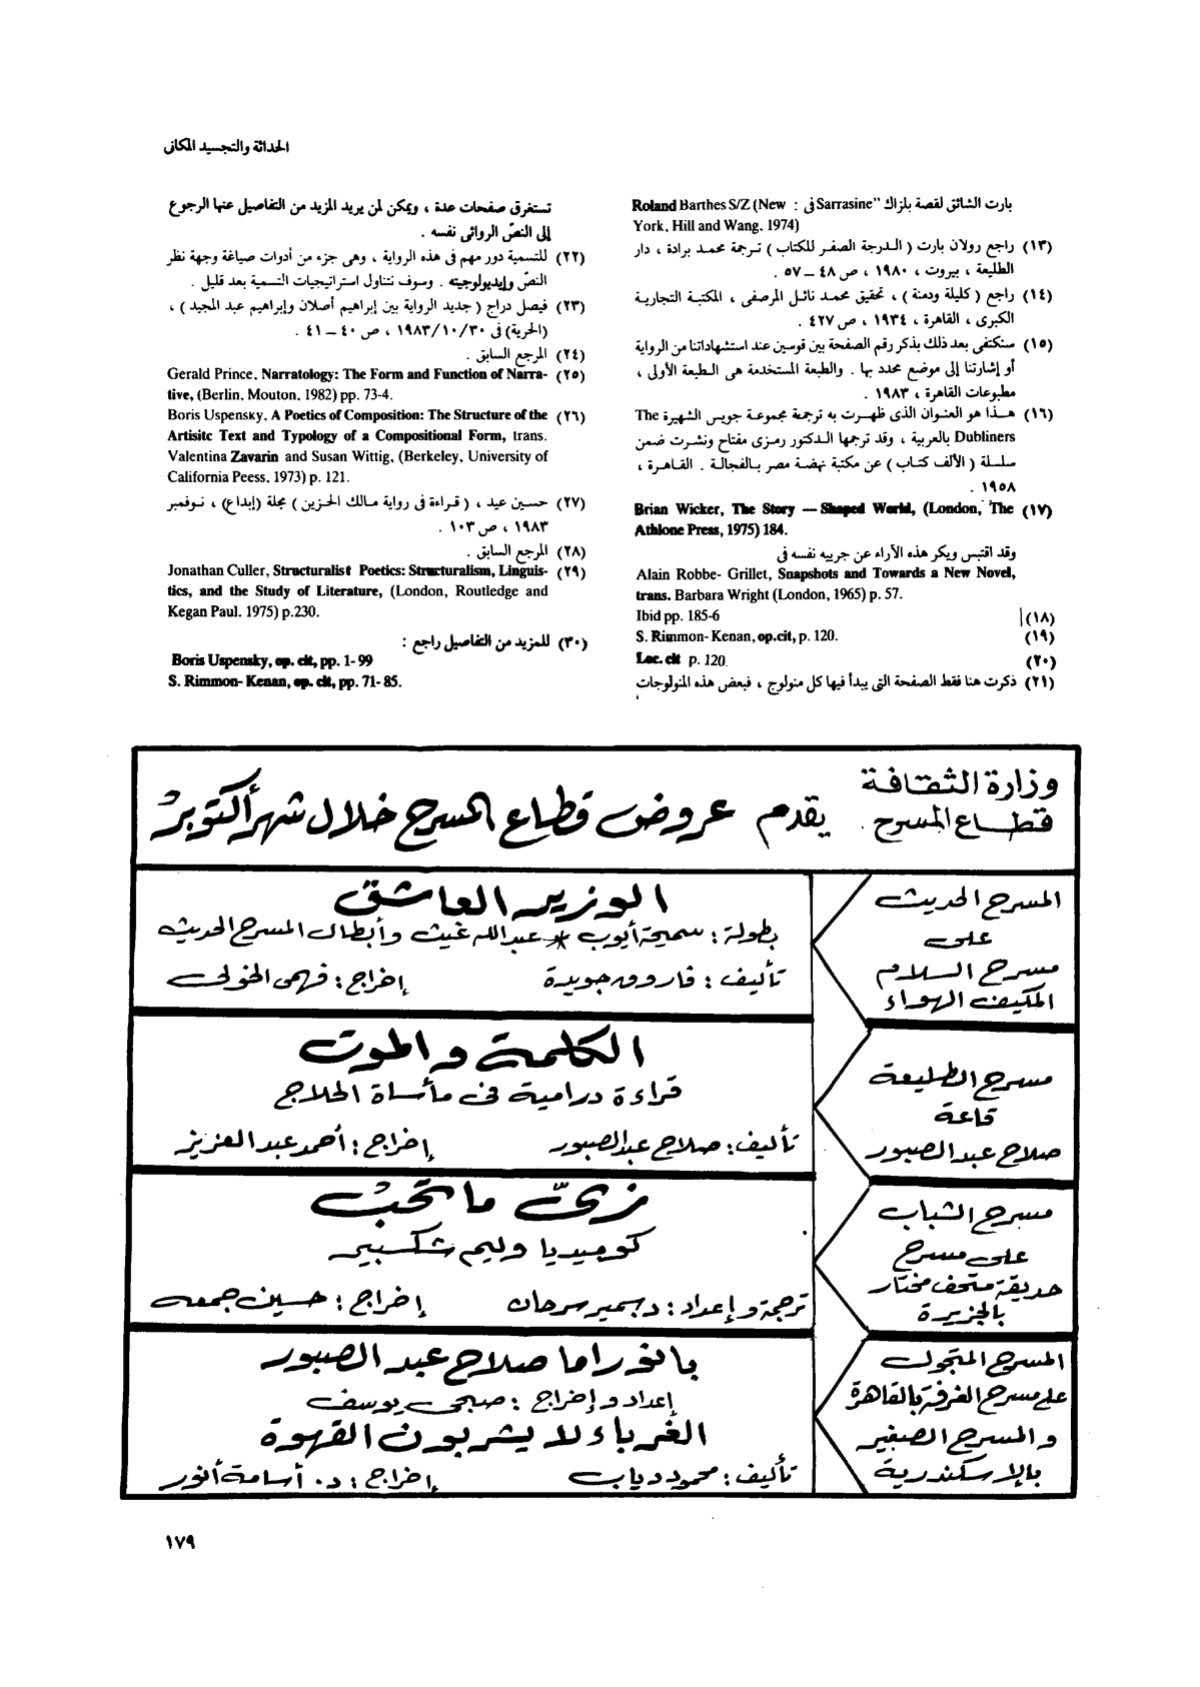 الحداثة والتجسيد المكانى
بارت الشائق لقصة بلزاك "Sarrasine فى : Roland Barthes S/Z (New
York, Hill and Wang. 1974)
(١٣) راجع رولان بارت ( الدرجة الصفر للكتاب ) ترجمة محمد برادة ، دار
الطليعة ، بيروت ، ١٩٨٠ ، ص ٤٨ – ٥٧ .
(١٤) راجع ( كليلة ودمنة ) ، تحقيق محمد نائل المرصفى ، المكتبة التجارية
الكبرى ، القاهرة ، ١٩٣٤ ، ص ٤٢٧ .
(١٥) سنكتفى بعد ذلك بذكر رقم الصفحة بين قوسين عند استشهاداتنا من الرواية
أو إشارتنا إلى موضع محدد بها . والطبعة المستخدمة هى الطبعة الأولى ،
مطبوعات القاهرة ، ١٩٨٣ .
(١٦) هذا هو العنوان الذى ظهرت به ترجمة مجموعة جويس الشهيرة The
Dubliners بالعربية ، وقد ترجمها الدكتور رمزى مفتاح ونشرت ضمن
سلسلة ( الألف كتاب ) عن مكتبة نهضة مصر بالفجالة . القاهرة ،
١٩٥٨ .
(١٧) Brian Wicker, The Story — Shaped World, (London, The
Athlone Press, 1975) 184.
وقد اقتبس ويكر هذه الآراء عن جرييه نفسه فى
Alain Robbe- Grillet, Snapshots and Towards a New Novel,
trans. Barbara Wright (London, 1965) p. 57.
(١٨) Ibid pp. 185-6
(١٩) S. Rimmon- Kenan, op.cit, p. 120.
(٢٠) Loc. cit p. 120
(٢١) ذكرت هنا فقط الصفحة التى يبدأ فيها كل منولوج ، فبعض هذه المنولوجات
تستغرق صفحات عدة ، ويمكن لمن يريد المزيد من التفاصيل عنها الرجوع
إلى النصّ الروائى نفسه .
(٢٢) للتسمية دور مهم فى هذه الرواية ، وهى جزء من أدوات صياغة وجهة نظر
النصّ وإيديولوجيته . وسوف نتناول استراتيجيات التسمية بعد قليل .
(٢٣) فيصل دراج ( جديد الرواية بين إبراهيم أصلان وإبراهيم عبد المجيد ) ،
(الحرية) فى ١٩٨٣/١٠/٣٠ ، ص ٤٠ – ٤١ .
(٢٤) المرجع السابق .
(٢٥) Gerald Prince, Narratology: The Form and Function of Narra-
tive, (Berlin. Mouton. 1982) pp. 73-4.
(٢٦) Boris Uspensky, A Poetics of Composition: The Structure of the
Artisitc Text and Typology of a Compositional Form, trans.
Valentina Zavarin and Susan Wittig, (Berkeley, University of
California Peess, 1973) p. 121.
(٢٧) حسين عيد ، ( قراءة فى رواية مالك الحزين ) مجلة (إبداع) ، نوفمبر
١٩٨٣ ، ص ١٠٣ .
(٢٨) المرجع السابق .
(٢٩) Jonathan Culler, Structuralist Poetics: Structuralism, Linguis-
tics, and the Study of Literature, (London, Routledge and
Kegan Paul. 1975) p.230.
(٣٠) للمزيد من التفاصيل راجع :
Boris Uspensky, op. cit, pp. 1- 99
S. Rimmon- Kenan, op. cit, pp. 71- 85.
وزارة الثقافة
قطاع المسرح. يقدم عروض قطاع المسرح خلال شهر أكتوبر
المسرح الحديث
على
مسرح السلام
المكيف الهواء
الوزير العاشق
بطولة : سميحة أيوب * عبدالله غيث وأبطال المسرح الحديث
تأليف : فاروق جويدة إخراج : فهمى الخولى
مسرح الطليعة
قاعة
صلاح عبد الصبور
الكلمة والموت
قراءة درامية فى مأساة الحلاج
تأليف : صلاح عبد الصبور إخراج : أحمد عبد العزيز
مسرح الشباب
على مسرح
حديقة متحف مختار
بالجزيرة
زىّ ما تحب
كوميديا وليم شكسبير
ترجمة وإعداد : د. سمير سرحان إخراج : حسين جمعه
المسرح المتجول
على مسرح الغرفة بالقاهرة
والمسرح الصغير
بالإسكندرية
بانوراما صلاح عبد الصبور
إعداد وإخراج : صبحى يوسف
الغرباء لا يشربون القهوة
تأليف : محمود دياب إخراج : د. أسامة أنور
١٧٩